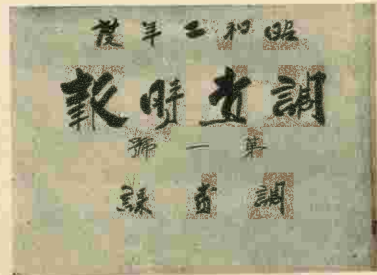 昭和二年度
調查時報
第一號
調查課